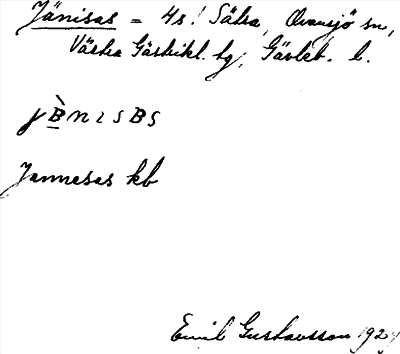 Jänisas = 4s! Sälra, Ovansjö sn,
Västra Gästrikl. tg, Gävleb. l.
jB̀nısBs
Jannesas kb
Emil Gustavsson 1924